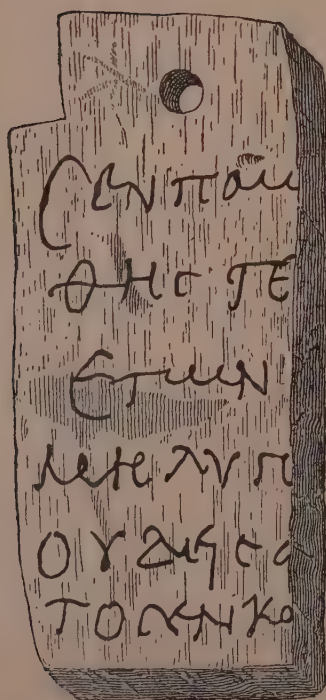 Ϲενπαμ
θης τε
ετων
μη λυπ
ουδις α
τος εν κο